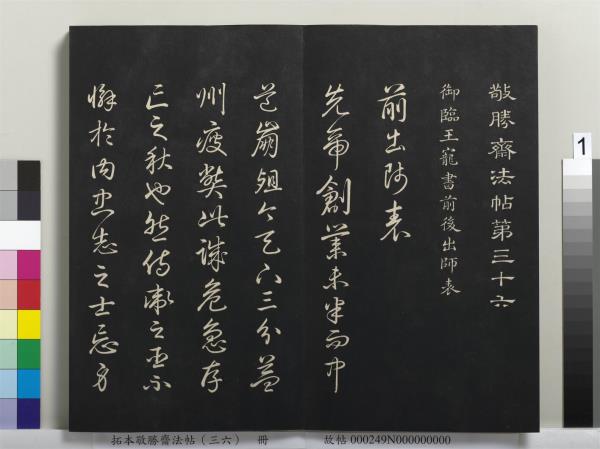 敬勝齋法帖第三十六
御臨王寵書前後出師表
前出師表
先帝創業未半而中
道崩殂今天下三分益
州疲弊此誠危急存
亡之秋也然侍衛之臣不
懈於內忠志之士忘身
1
拓本敬勝齋法帖(三六) 冊 故帖 000249N000000000